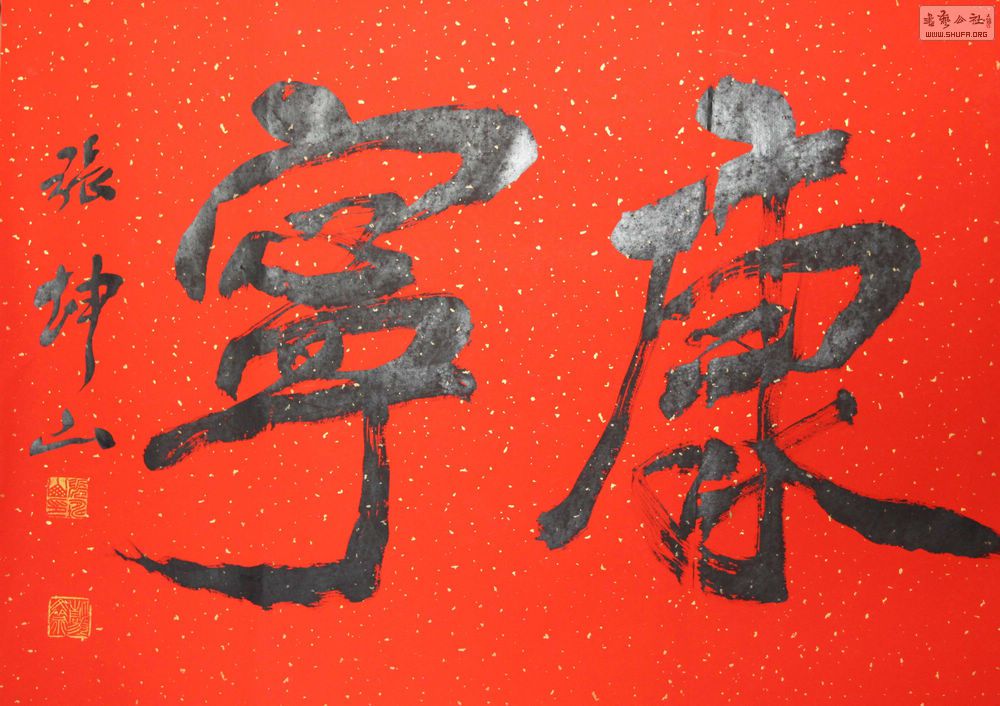 康寧
張坤山
书艺公社
WWW.SHUFA.ORG